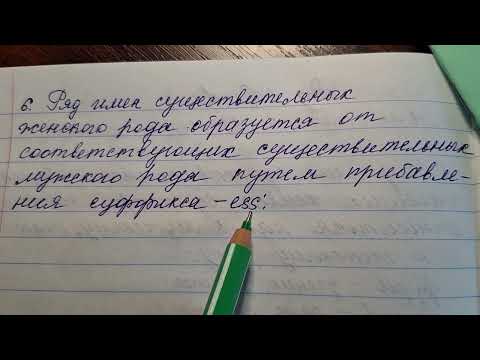 6. Ряд имен существительных
женского рода образуется от
соответствующих существительных
мужского рода путем прибавле-
ния суффикса -ess: